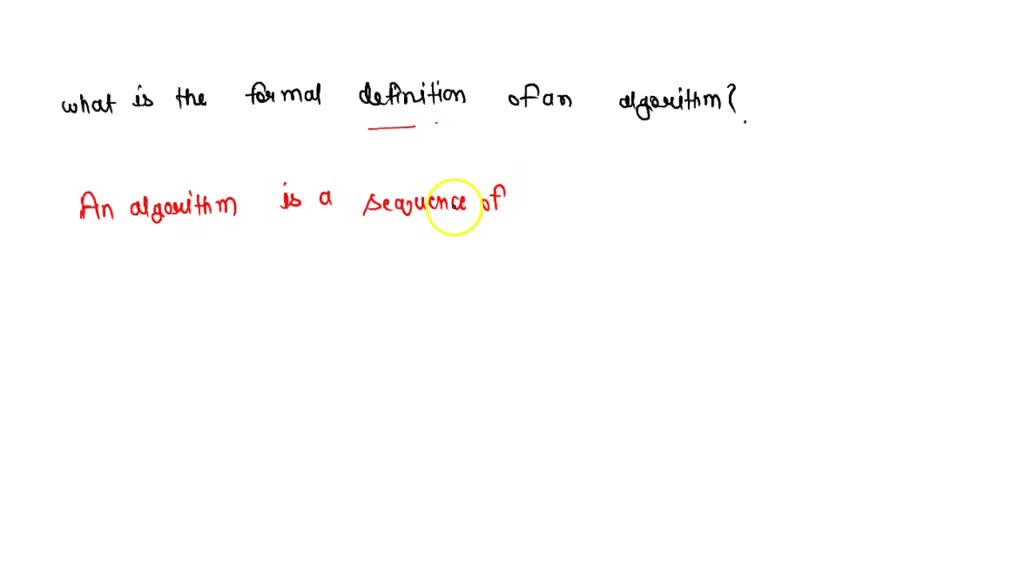 what is the formal definition of an algorithm?
An algorithm is a sequence of